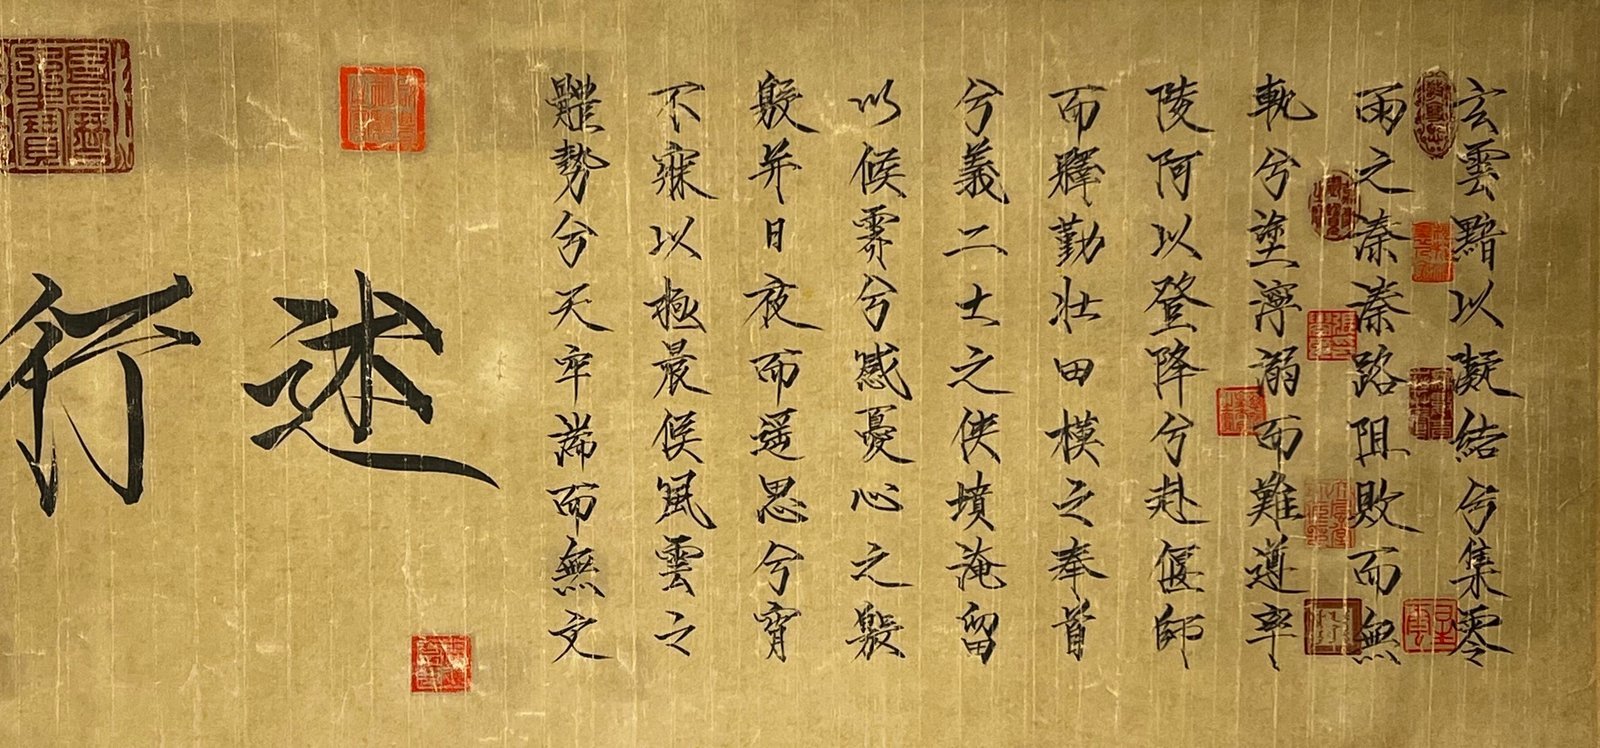 玄雲黯以凝結兮集零
雨之溱溱路阻敗而無
軌兮塗濘溺而難遵率
陵阿以登降兮赴偃師
而釋勤壯田橫之奉首
兮義二士之俠墳淹留
以候霽兮感憂心之殷
殷并日夜而遥思兮宵
不寐以極晨候風雲之
體勢兮天牢湍而無文
述行